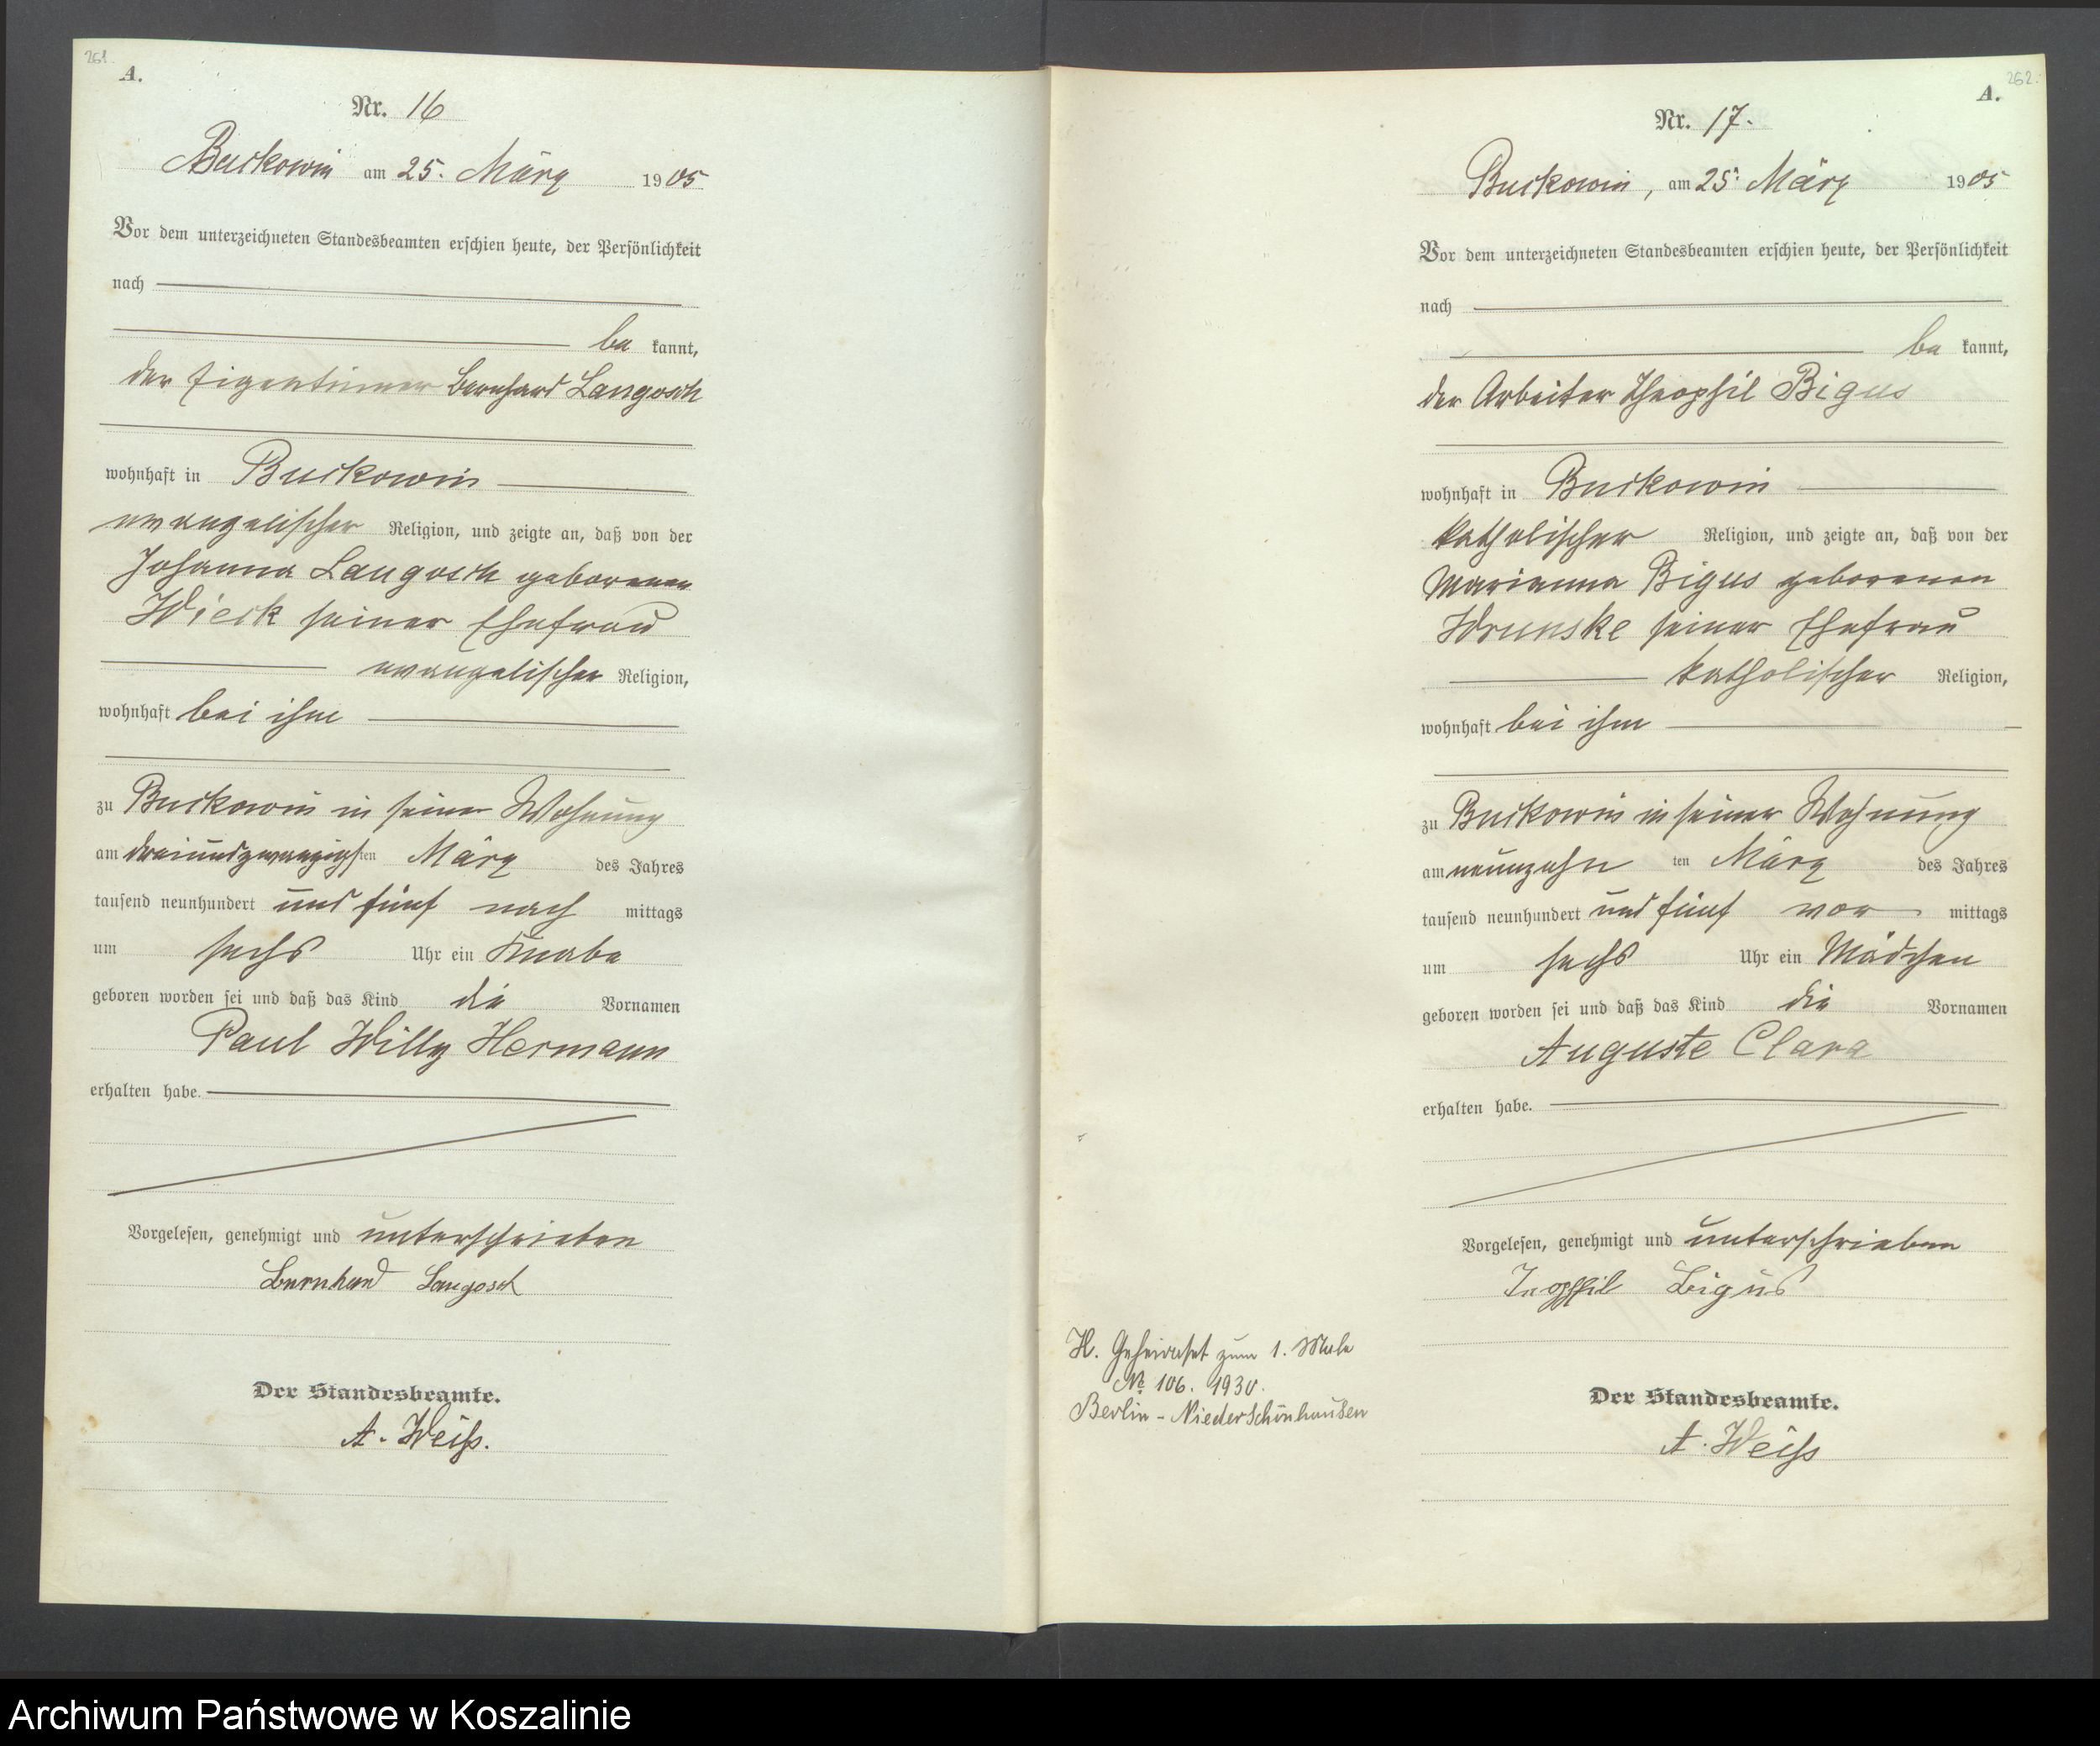 261.
A.
Nr. 16
Buckowin am 25. März 1905
Vor dem unterzeichneten Standesbeamten erschien heute, der Persönlichkeit
nach
be kannt,
der Eigentümer Bernhard Langosch
wohnhaft in Buckowin
evangelischer Religion, und zeigte an, daß von der
Johanna Langosch geborenen
Wieck seiner Ehefrau
evangelischer Religion,
wohnhaft bei ihm
zu Buckowin in seiner Wohnung
am dreiundzwanzigsten März des Jahres
tausend neunhundert und fünf nach mittags
um sechs Uhr ein Knabe
geboren worden sei und daß das Kind die Vornamen
Paul Willy Hermann
erhalten habe.
Vorgelesen, genehmigt und unterschrieben
Bernhard Langosch
Der Standesbeamte.
A. Weiß.
262.
A.
Nr. 17.
Buckowin, am 25. März 1905
Vor dem unterzeichneten Standesbeamten erschien heute, der Persönlichkeit
nach
be kannt,
der Arbeiter Theophil Bigus
wohnhaft in Buckowin
katholischer Religion, und zeigte an, daß von der
Marianna Bigus geborenen
Wrunske seiner Ehefrau
katholischer Religion,
wohnhaft bei ihm
zu Buckowin in seiner Wohnung
am neunzehn ten März des Jahres
tausend neunhundert und fünf vor mittags
um sechs Uhr ein Mädchen
geboren worden sei und daß das Kind die Vornamen
Auguste Clara
erhalten habe.
Vorgelesen, genehmigt und unterschrieben
Teopfil Bigus
H. Geheiratet zum 1. Male
No 106. 1930.
Berlin-Niederschönhausen
Der Standesbeamte.
A. Weiß
Archiwum Państwowe w Koszalinie